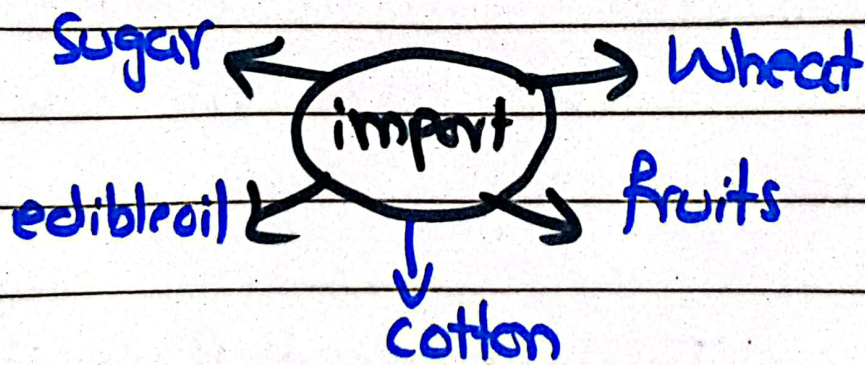 Sugar
Wheat
import
edibleoil
fruits
cotton